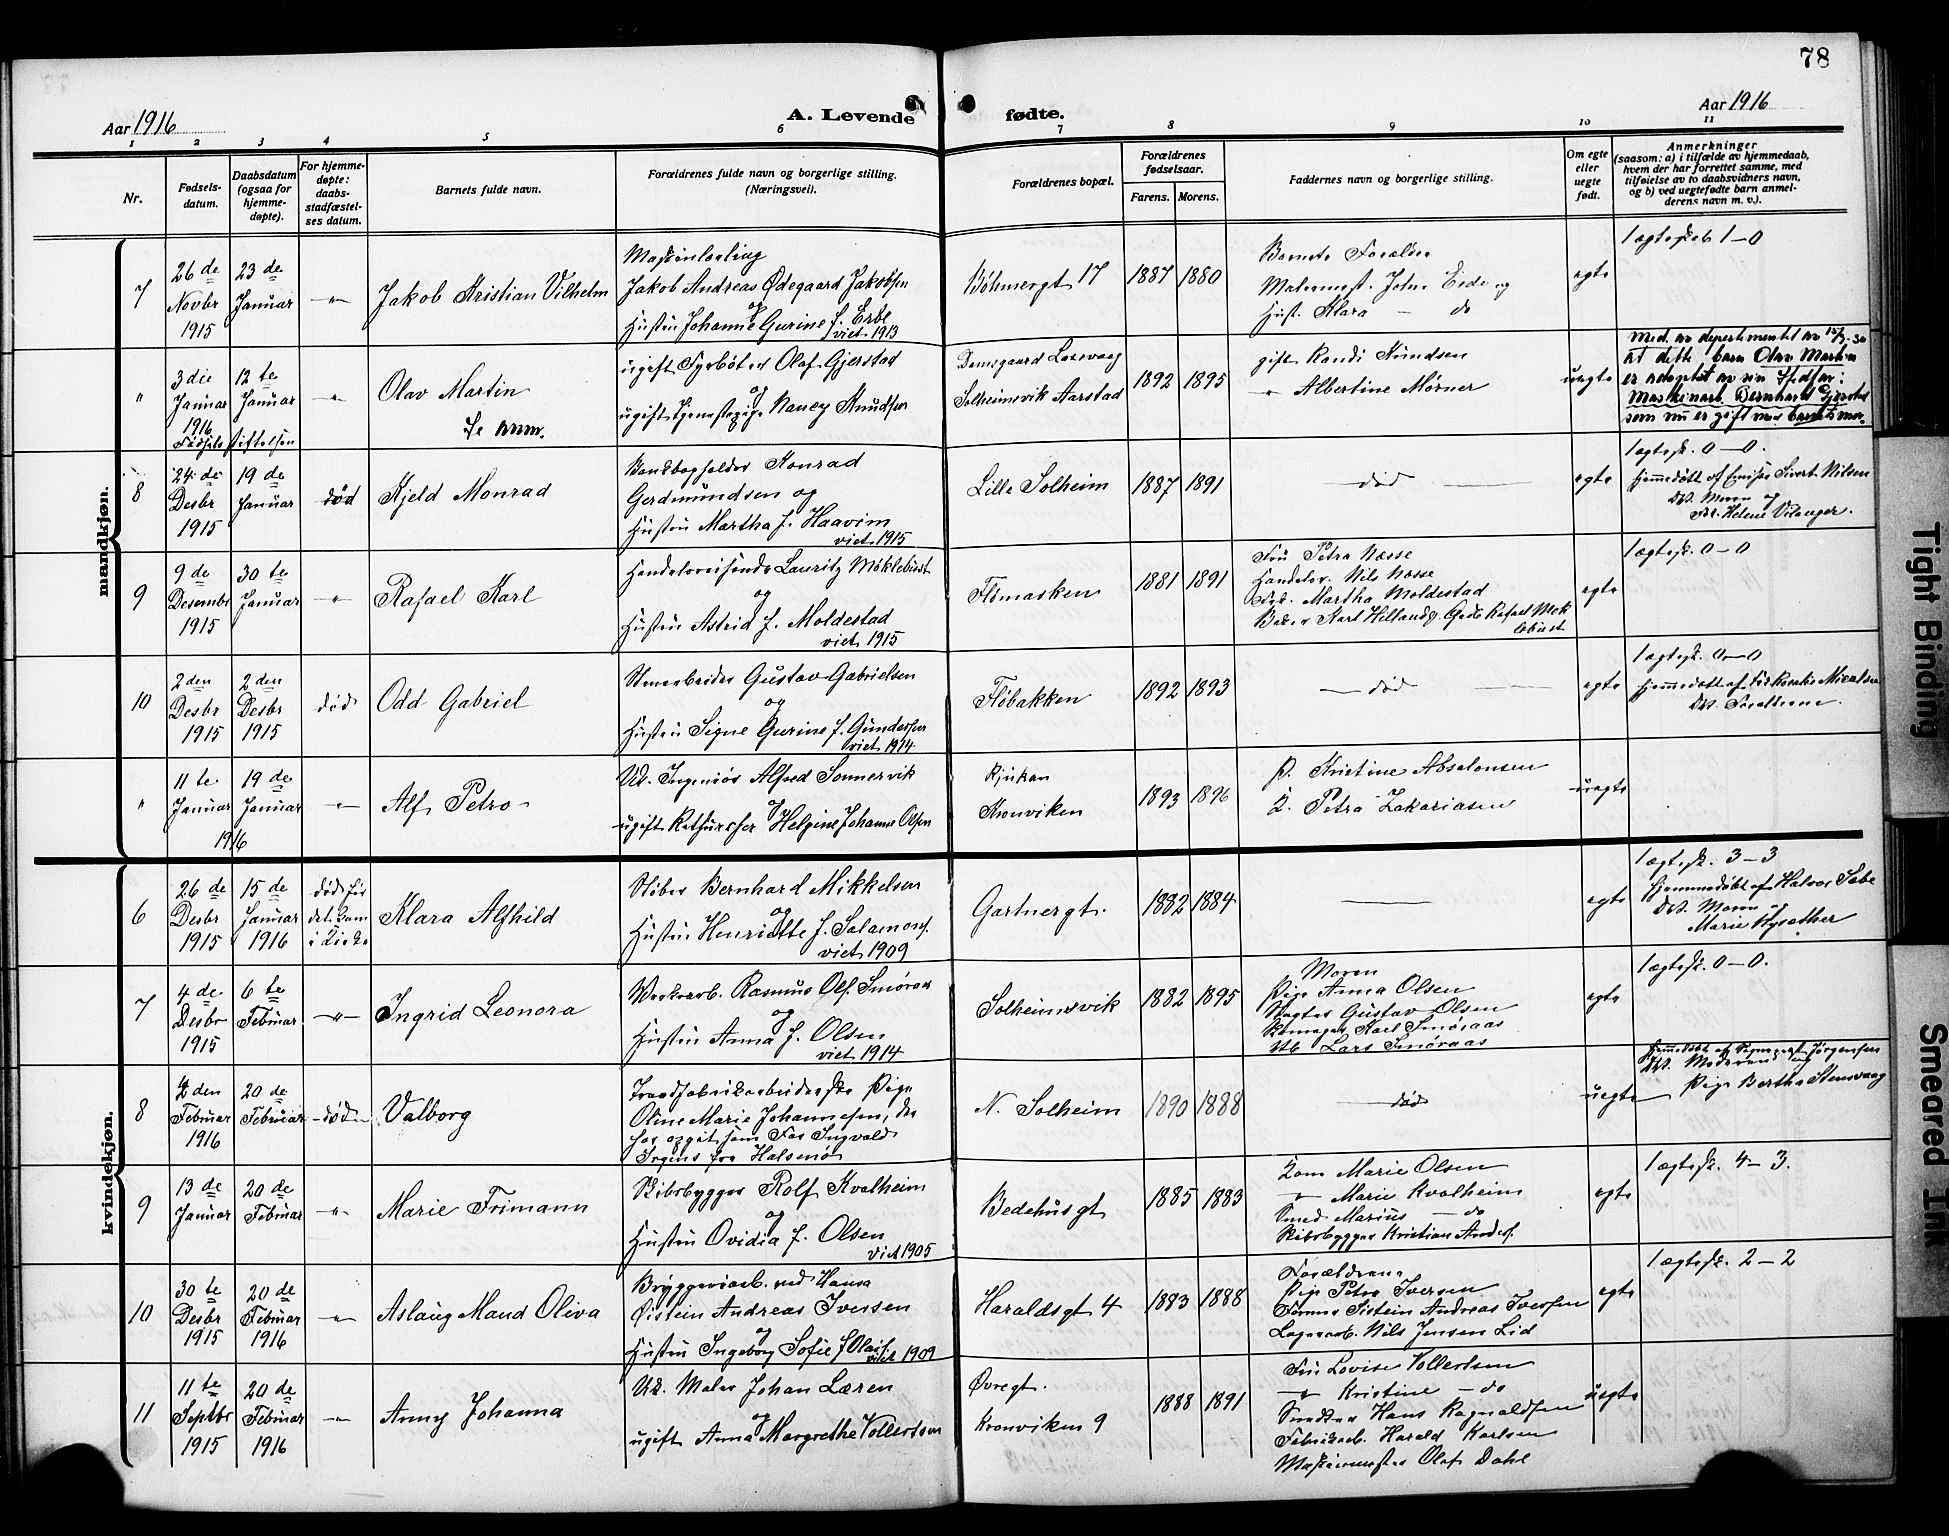 78
Aar 1916
A. Levende fødte.
Aar 1916
1 2 3 4 5 6 7 8 9 10 11
Nr.
Fødsels-
datum.
Daabsdatum
(ogsaa for
hjemme-
døpte).
For hjemme-
døpte:
daabs-
stadfæstel-
ses datum.
Barnets fulde navn.
Forældrenes fulde navn og borgerlige stilling.
(Næringsvei).
Forældrenes bopæl.
Forældrenes
fødselsaar.
Farens. Morens.
Faddernes navn og borgerlige stilling.
Om egte
eller
uegte
født.
Anmerkninger
(saasom: a) i tilfælde av hjemmedaab,
hvem der har forrettet samme, med
tilføielse av to daabsvidners navn,
og b) ved uegtefødte barn anmel-
derens navn m. v.).
mandkjøn.
7
26 de
Novbr
1915
23 de
Januar
Jakob Kristian Vilhelm
Jakob Andreas Ødegaard Jakobsen
og
Hustru Johanne Gurine f. Erbe
viet 1913
Bøhmergt 17
1887 1880
Barnets Forældre
Malermest. John Eide og
Hust. Klara – do
egte
1 ægtesk. 1–0
"
3 die
Januar
1916
Fødselsstiftelsen
12 te
Januar
Olav Martin
Se anm.
ugift Fyrbøter Olaf Gjerstad
og
ugift Tjenestepige Nancy Knudsen
Damsgaard Laxevaag
Solheimsvik Aarstad
1892 1895
gift Randi Knudsen
" Albertine Mørner
uegte
Med. av departementet av
at dette barn Olav Martin
er adoptert av sin Stedfar:
Maskinarb. Bernhard Gjerstad
som nu er gift med barnets mor.
8
24 de
Desbr
1915
19 de
Januar
død
Kjeld Monrad
Konrad
Gerdmundsen og
Hustru Martha f. Haavim
viet 1915
Lille Solheim
1887 1891
død
egte
1 ægtesk. 0–0.
Hjemmedøbt af Sivert Nilsen
Dv. Moren og
Helene Vilanger.
9
9 de
Desembr
1915
30 te
Januar
Rafael Karl
Handelsreisende Lauritz Møklebust
og
Hustru Astrid f. Moldestad
viet 1915
Flømasken
1881 1891
Fru Petra Næsse
Handelsr. Nils Næsse
Martha Moldestad
Karl Helland, Rafael Møk
lebust
egte
1 ægtesk. 0–0
10
2 den
Desbr
1915
2 den
Desbr
1915
død
Odd Gabriel
Stenarbeider Gustav Gabrielsen
og
Hustru Signe Gurine f. Gundersen
viet 1914
Fløbakken
1892 1893
død
egte
1 ægtesk. 0–0
Dv. Forældrene.
"
11 te
Januar
1916
19 de
Januar
Alf Petro
Uk. Ingeniør Alfred Sønnervik
og
ugift Helgine Johanne Olsen
Rjukan
Kronviken
1893 1896
P. Kristine Absalonsen
K. Petra Zakariasen
uegte
kvindekjøn.
6
26 de
Desbr
1915
15 de
Januar
1916
død før
det kom
i Kirke
Klara Alfhild
Støber Bernhard Mikkelsen
og
Hustru Henriette f. Salamons.
viet 1909
Gartnergt.
1882 1884
egte
1 ægtesk. 3–3
Hjemmedøbt af Halvor Sæbø
Dv. Moren og
Marie
7
4 de
Desbr
1915
6 te
Februar
Ingrid Leonora
Verksarb. Rasmus Ols. Smøraas
og
Hustru Anna f. Olsen
viet 1914
Solheimsvik
1882 1895
Moren
Pige Anna Olsen
Slagter Gustav Olsen
Skomager Karl Smøraas
Lars Smøraas
egte
1 ægtesk. 0–0.
8
2 den
Februar
1916
20 de
Februar
død
Valborg
Traadfabrikarbeiderske Pige
Oline Marie Johannesen, der
har opgit som Far Ingvald
Irgens fra Halsenø
N. Solheim
1890 1888
død
uegte
Hjemmedøbt af Jørgensen
Dv. Moderen og
Pige Bertha Stensvaag
9
13 de
Januar
20 de
Februar
Marie Frimann
Skibsbygger Rolf Kvalheim
og
Hustru Ovidia f. Olsen
viet 1905
Bedehusgt
1885 1883
Kone Marie Olsen
" Marie Kvalheim
Smed Marius – do
Skibsbygger Kristian Anders.
egte
1 ægtesk. 4–3.
10
30 te
Desbr
1915
20 de
Februar
1916
Aslaug Maud Oliva
Bryggeriarb. ved Hansa
Øistein Andreas Iversen
og
Hustru Ingeborg Sofie f. Olais.
viet 1909
Haraldsgt 4
1883 1888
Forældrene
Pige Petra Iversen
Tømmerm. Sistein Andreas Iversen
Lagerarb. Nils Jensen Lid
egte
1 ægtesk. 2–2
11
11 te
Septbr
1915
20 de
Februar
1916
Anny Johanna
Uk. Maler Johan Læren
og
ugift Anna Margrethe Vollertsen
Øvregt.
Kronviken 9
1888 1891
Fru Lovise Vollertsen
" Kristine – do
Snedker Hans Ragnaldsen
Fabrikarb. Harald Karlsen
Maskinmester Olaf Dahl
uegte
Tight Binding
Smeared Ink